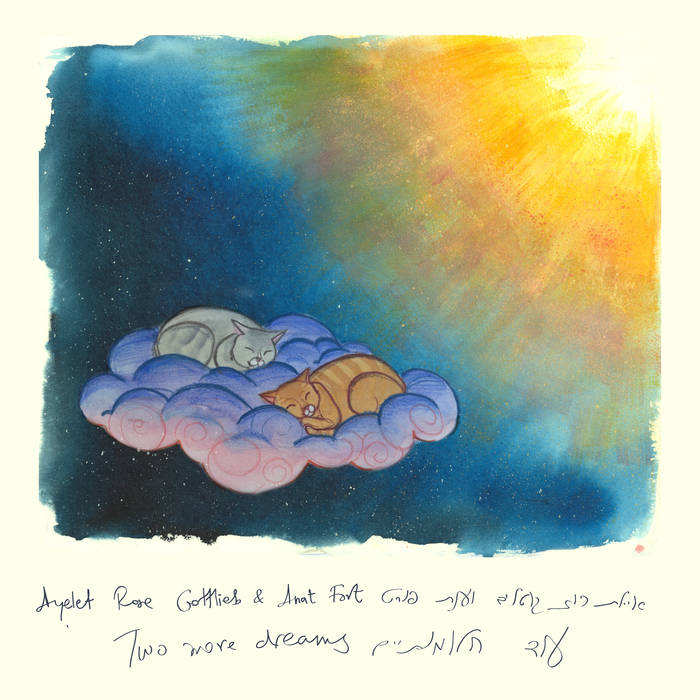 Ayelet Rose Gottlieb & Anat Fort איילת רוז גוטליב וענת פורט
Two more dreams עוד חלומותיים